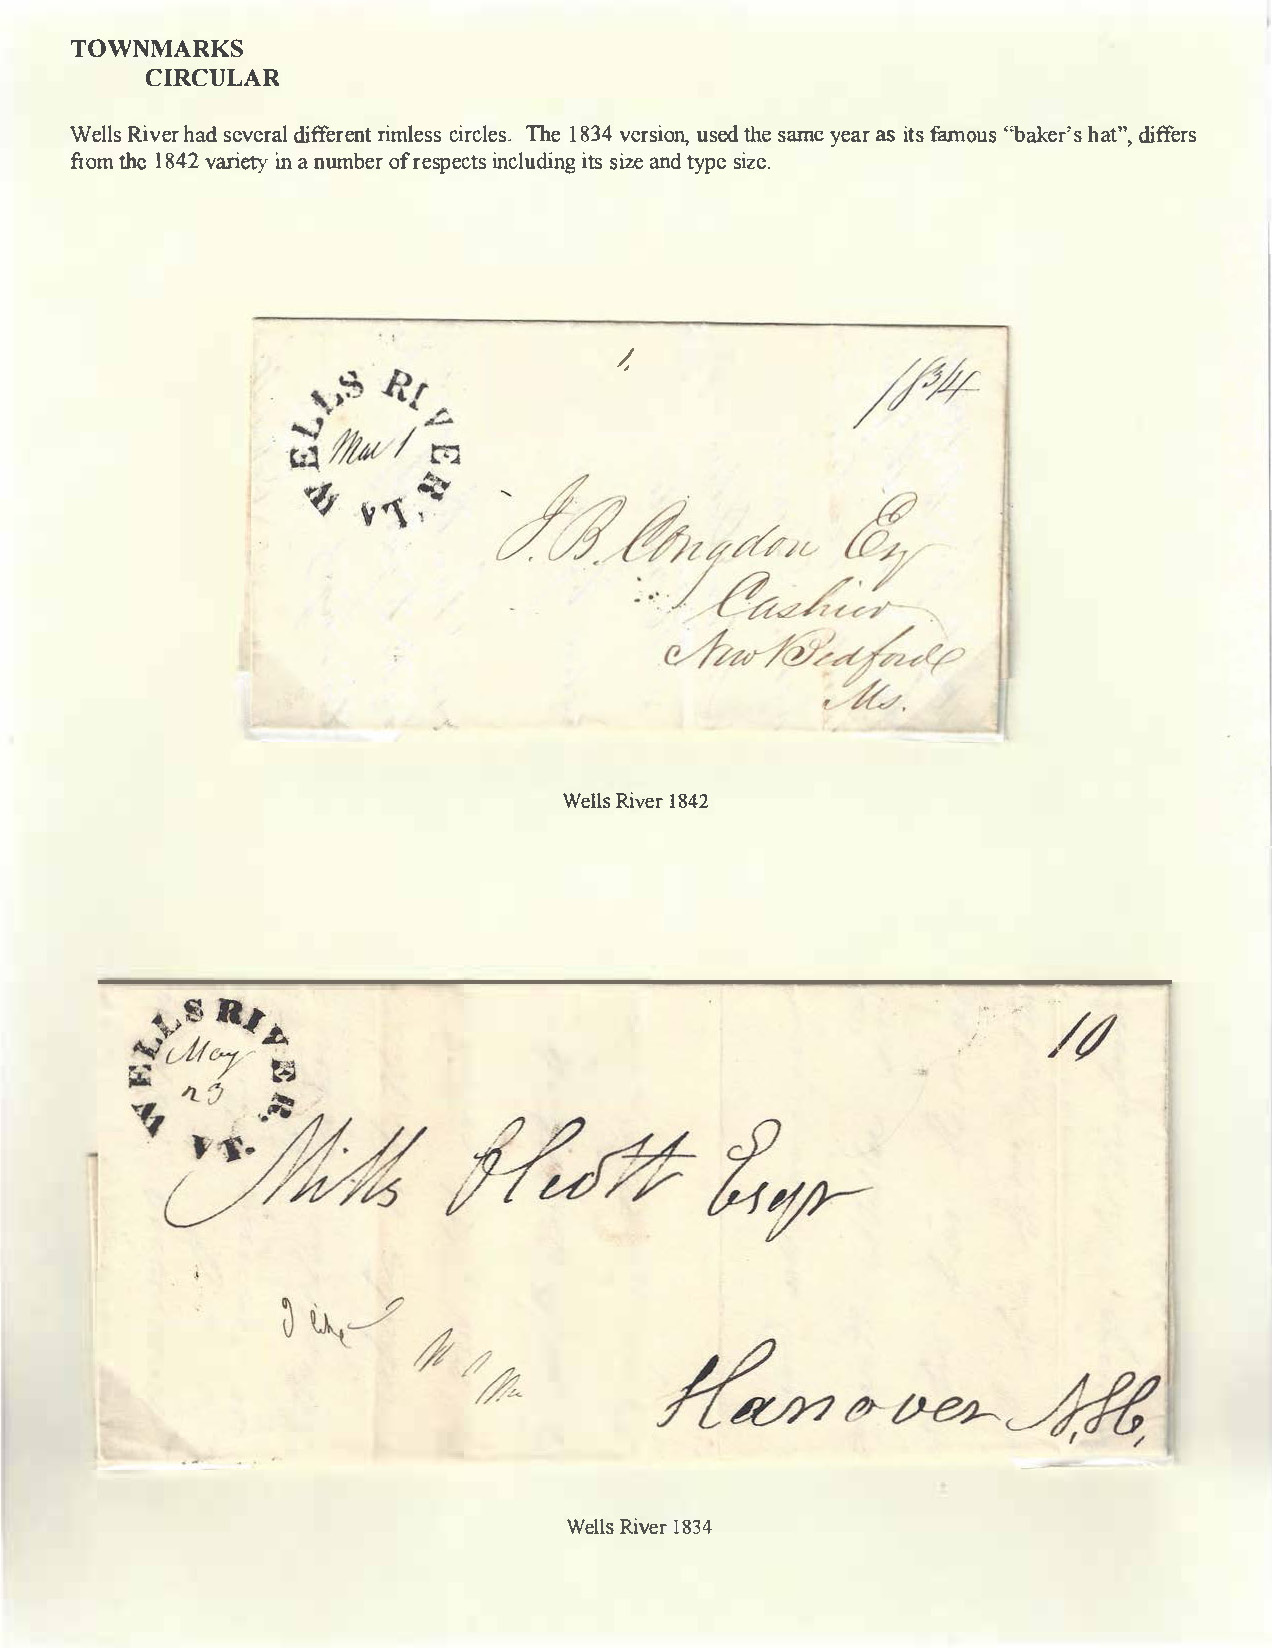 TOWNMARKS
CIRCULAR
Wells River had several different rimless circles. The 1834 version, used the same year as its famous “baker’s hat”, differs
from the 1842 variety in a number of respects including its size and type size.
WELLS RIVER. VT
Mar 1
18 3/4
J. B. Congdon Esq
Cashier
New Bedford
Ms.
Wells River 1842
WELLS RIVER. VT.
May
23
10
Mills Olcott Esqr
Hanover N.H.
Wells River 1834